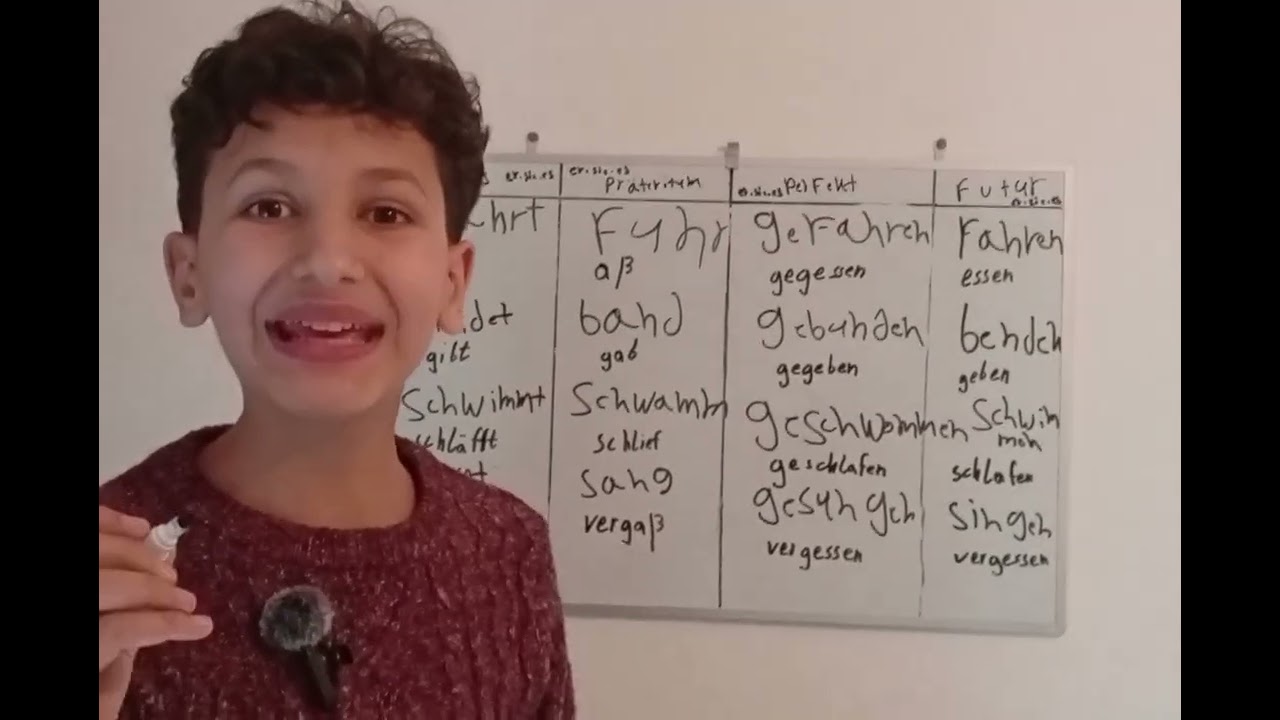 er.sie.es er.sie.es Präteritum er.sie.es Perfekt Futur er.sie.es
hrt Fuhr geFahren Fahren
aß gegessen essen
det band gebunden benden
gilt gab gegeben geben
Schwimmt Schwamm geschwommen Schwim
men
schläfft schlief geschlafen schlafen
sang gesungen singen
vergaß vergessen vergessen